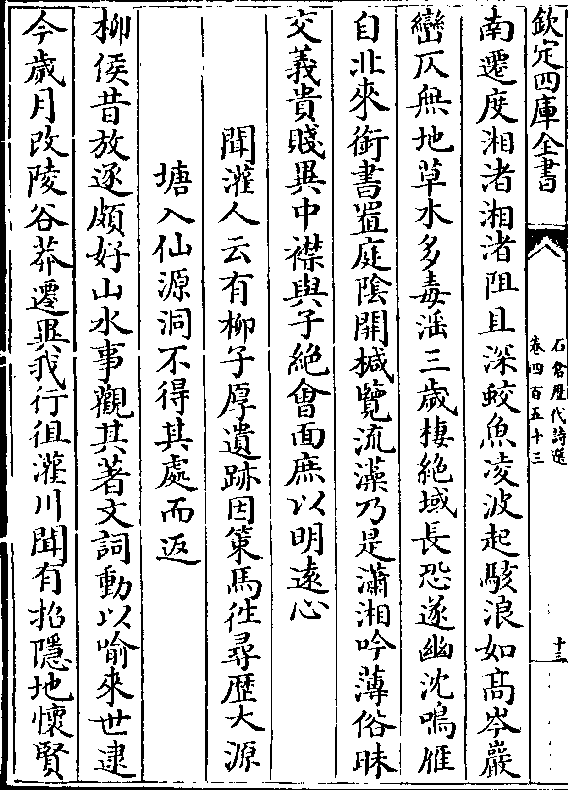 欽定四庫全書
石倉歷代詩選
卷四百五十三
十三
南遷度湘渚湘渚阻且深鮫魚凌波起駭浪如髙岑巖
巒仄無地草木多毒滛三歳棲絶域長恐遂幽沈鳴雁
自北來銜書置庭陰開椷覽流藻乃是瀟湘吟薄俗昧
交義貴賤異中襟與子絶會面庶以明遠心
聞灌人云有柳子厚遺跡因策馬徃尋歴大源
塘入仙源洞不得其處而返
柳侯昔放逐頗好山水事觀其著文詞動以喻來世逮
今歳月改陵谷莽遷異我行徂灌川聞有招隱地懷賢